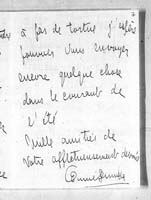 à pas de tortue j'espère
pouvoir vous envoyer
encore quelque chose
dans le courant de
l'été
Mille amitiés de
votre affectueusement dévoué